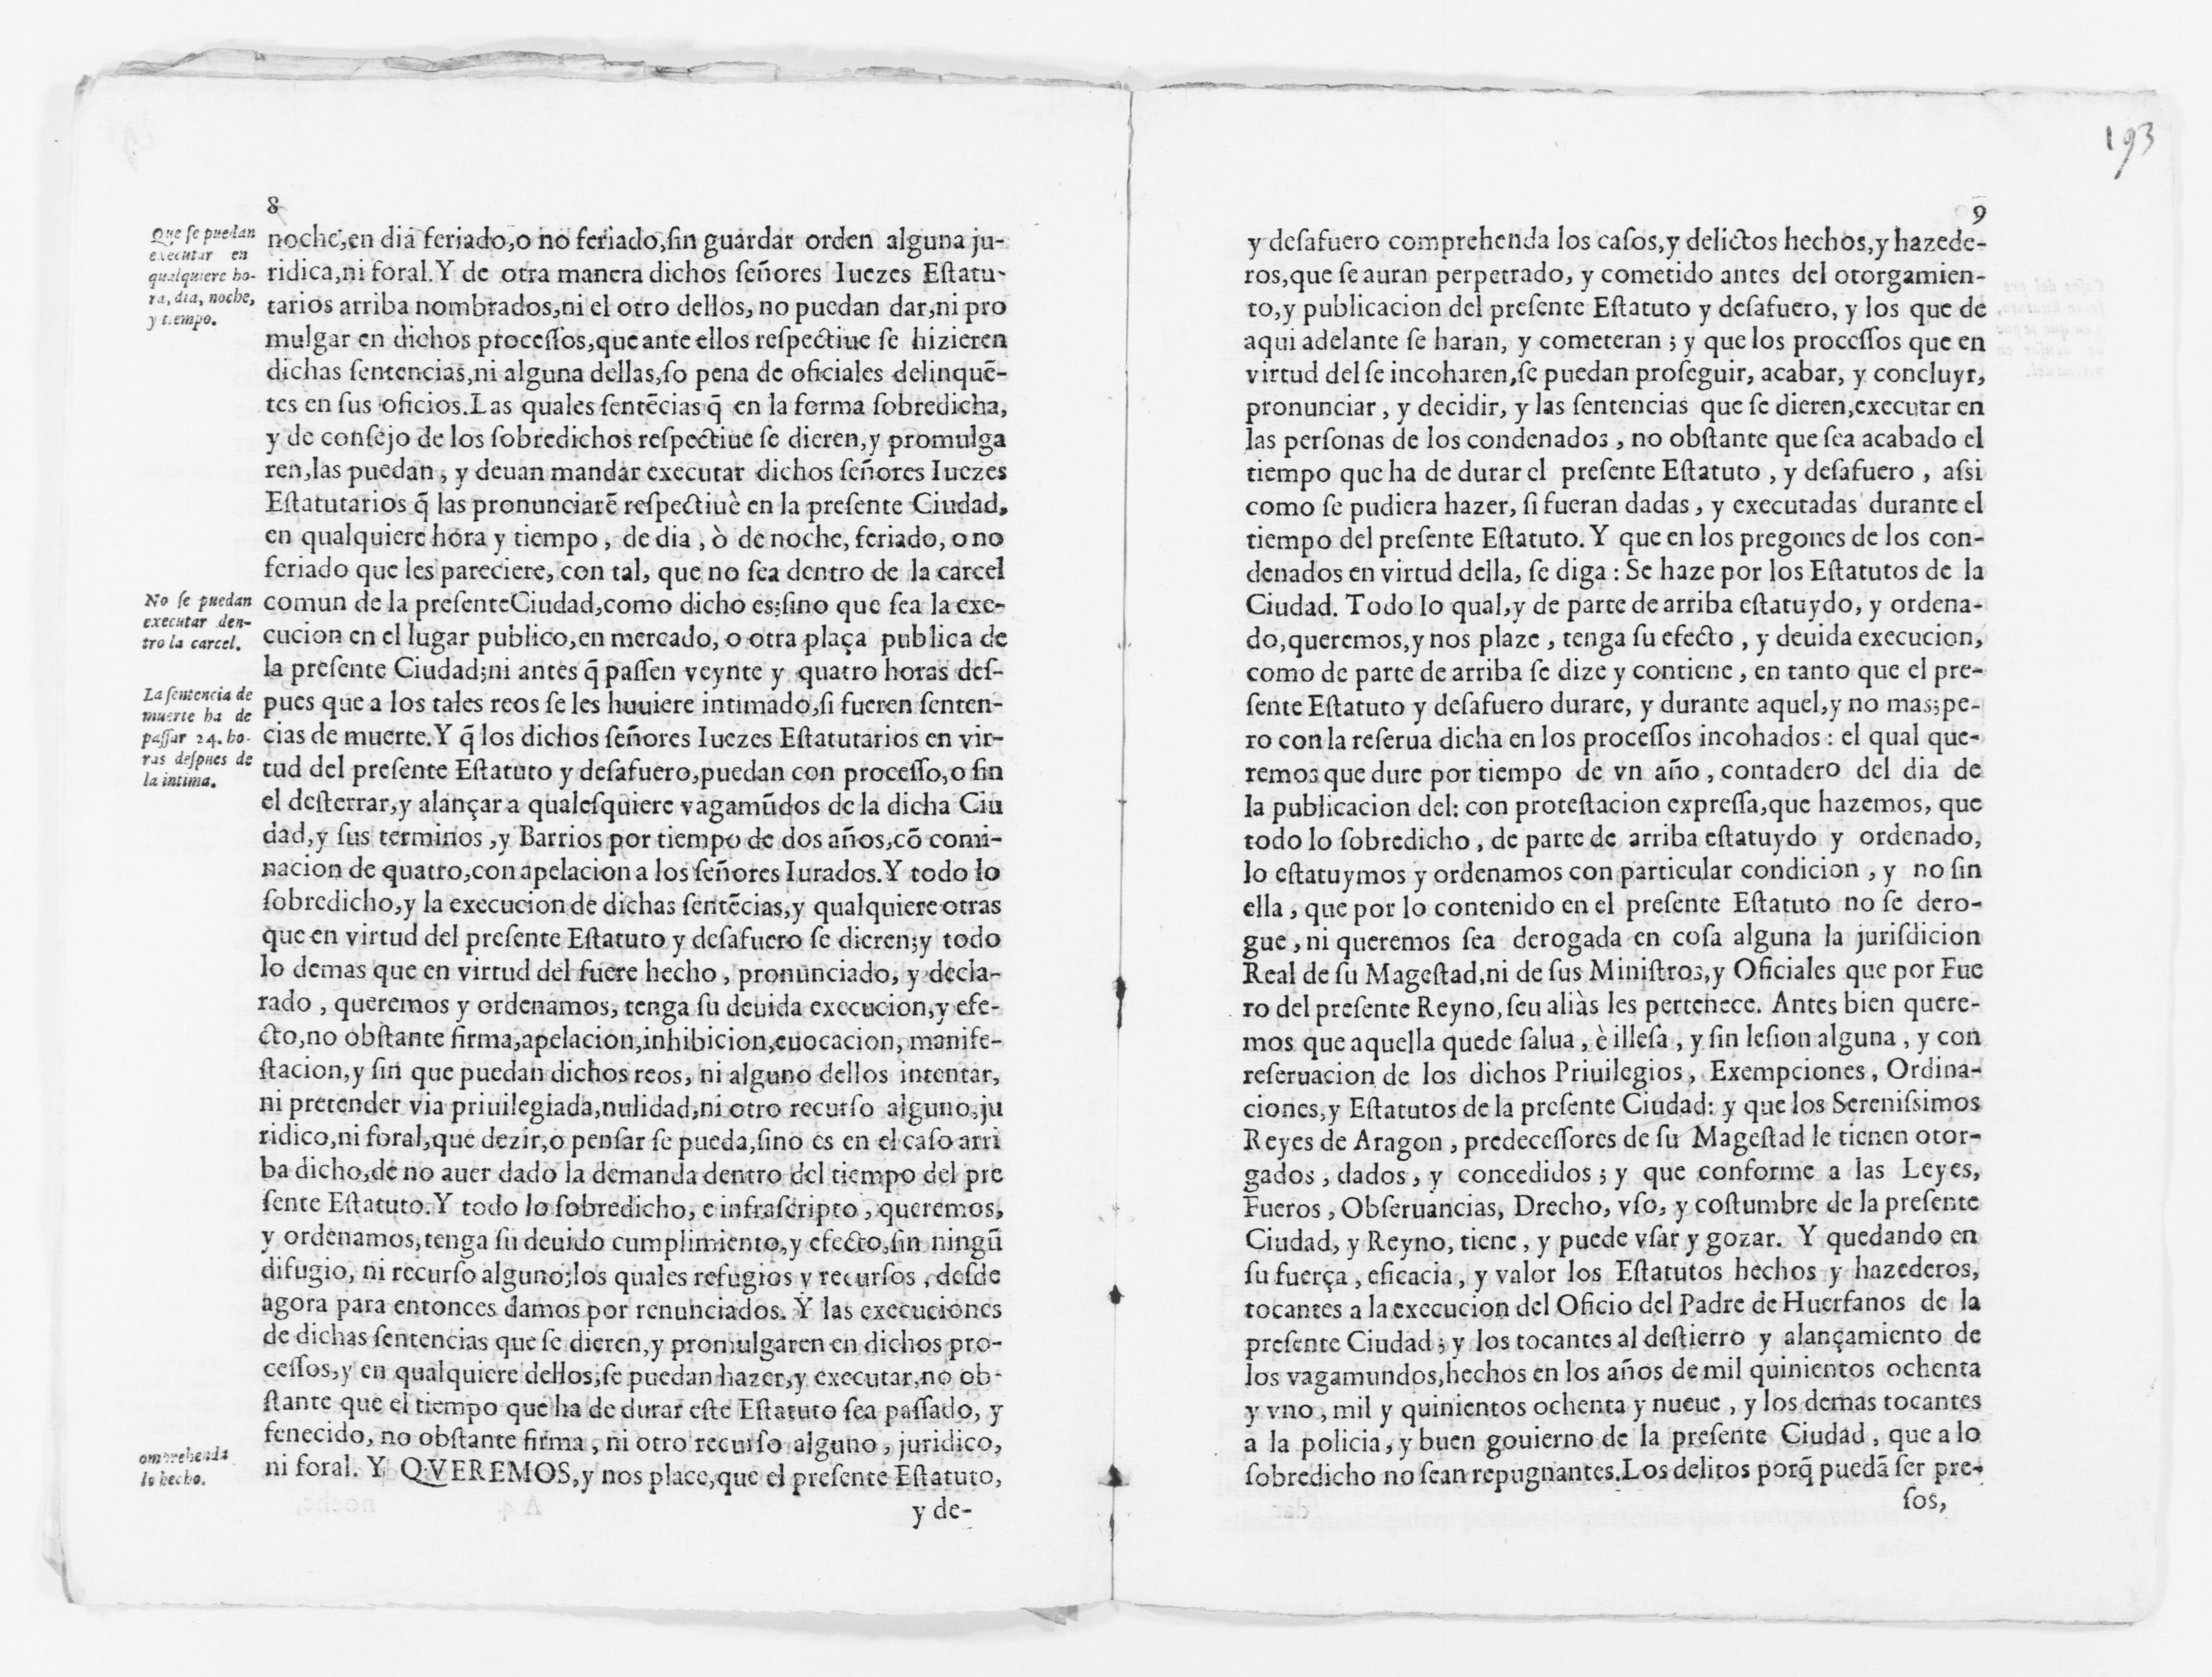 8
Que ſe puedan
executar en
qualquiere ho-
ra, dia, noche,
y tiempo.
noche,en dia feriado,o no feriado,ſin guardar orden alguna ju-
ridica,ni foral.Y de otra manera dichos ſeñores Iuezes Eſtatu-
tarios arriba nombrados,ni el otro dellos, no puedan dar,ni pro
mulgar en dichos proceſſos,que ante ellos reſpectiue ſe hizieren
dichas ſentencias,ni alguna dellas,ſo pena de oficiales delinquē-
tes en ſus oficios.Las quales ſentēcias q̄ en la forma ſobredicha,
y de conſejo de los ſobredichos reſpectiue ſe dieren,y promulga
ren,las puedan, y deuan mandar executar dichos ſeñores Iuezes
Eſtatutarios q̄ las pronunciarē reſpectiuè en la preſente Ciudad,
en qualquiere hora y tiempo, de dia, ò de noche, feriado, o no
feriado que les pareciere, con tal, que no ſea dentro de la carcel
No ſe puedan
executar den-
tro la carcel.
comun de la preſente Ciudad,como dicho es;ſino que ſea la exe-
cucion en el lugar publico,en mercado, o otra plaça publica de
la preſente Ciudad;ni antes q̄ paſſen veynte y quatro horas deſ-
La ſentencia de
muerte ha de
paſſar 24. ho-
ras deſpues de
la intima.
pues que a los tales reos ſe les huuiere intimado,ſi fueren ſenten-
cias de muerte.Y q̄ los dichos ſeñores Iuezes Eſtatutarios en vir-
tud del preſente Eſtatuto y deſafuero,puedan con proceſſo,o ſin
el deſterrar,y alançar a qualeſquiere vagamūdos de la dicha Ciu
dad,y ſus terminos ,y Barrios por tiempo de dos años,cō comi-
nacion de quatro,con apelacion a los ſeñores Iurados.Y todo lo
ſobredicho,y la execucion de dichas ſentēcias,y qualquiere otras
que en virtud del preſente Eſtatuto y deſafuero ſe dieren;y todo
lo demas que en virtud del fuere hecho, pronunciado, y decla-
rado , queremos y ordenamos, tenga ſu deuida execucion,y efe-
cto,no obſtante firma,apelacion,inhibicion,euocacion, manife-
ſtacion,y ſin que puedan dichos reos, ni alguno dellos intentar,
ni pretender via priuilegiada,nulidad,ni otro recurſo alguno,ju
ridico,ni foral,que dezir,o penſar ſe pueda,ſino es en el caſo arri
ba dicho,de no auer dado la demanda dentro del tiempo del pre
ſente Eſtatuto.Y todo lo ſobredicho, e infraſcripto, queremos,
y ordenamos,tenga ſu deuido cumplimiento,y efecto,ſin ningū
difugio, ni recurſo alguno;los quales refugios y recurſos, deſde
agora para entonces damos por renunciados. Y las execuciones
de dichas ſentencias que ſe dieren,y promulgaren en dichos pro-
ceſſos,y en qualquiere dellos,ſe puedan hazer,y executar,no ob-
ſtante que el tiempo que ha de durar eſte Eſtatuto ſea paſſado, y
fenecido, no obſtante firma, ni otro recurſo alguno, juridico,
omprehenda
lo hecho.
ni foral. Y QVEREMOS,y nos place,que el preſente Eſtatuto,
y de-
193
9
y deſafuero comprehenda los caſos,y delictos hechos,y hazede-
ros,que ſe auran perpetrado, y cometido antes del otorgamien-
to,y publicacion del preſente Eſtatuto y deſafuero, y los que de
aqui adelante ſe haran, y cometeran ; y que los proceſſos que en
virtud del ſe incoharen,ſe puedan proſeguir, acabar, y concluyr,
pronunciar , y decidir, y las ſentencias que ſe dieren,executar en
las perſonas de los condenados , no obſtante que ſea acabado el
tiempo que ha de durar el preſente Eſtatuto , y deſafuero , aſsi
como ſe pudiera hazer, ſi fueran dadas , y executadas durante el
tiempo del preſente Eſtatuto. Y que en los pregones de los con-
denados en virtud della, ſe diga : Se haze por los Eſtatutos de la
Ciudad. Todo lo qual,y de parte de arriba eſtatuydo, y ordena-
do,queremos,y nos plaze , tenga ſu efecto , y deuida execucion,
como de parte de arriba ſe dize y contiene , en tanto que el pre-
ſente Eſtatuto y deſafuero durare, y durante aquel,y no mas;pe-
ro con la reſerua dicha en los proceſſos incohados : el qual que-
remos que dure por tiempo de vn año , contadero del dia de
la publicacion del: con proteſtacion expreſſa,que hazemos, que
todo lo ſobredicho , de parte de arriba eſtatuydo y ordenado,
lo eſtatuymos y ordenamos con particular condicion , y no ſin
ella , que por lo contenido en el preſente Eſtatuto no ſe dero-
gue , ni queremos ſea derogada en coſa alguna la juriſdicion
Real de ſu Mageſtad,ni de ſus Miniſtros,y Oficiales que por Fue
ro del preſente Reyno, ſeu aliàs les pertenece. Antes bien quere-
mos que aquella quede ſalua , è illeſa , y ſin leſion alguna , y con
reſeruacion de los dichos Priuilegios , Exempciones , Ordina-
ciones,y Eſtatutos de la preſente Ciudad: y que los Sereniſsimos
Reyes de Aragon , predeceſſores de ſu Mageſtad le tienen otor-
gados , dados , y concedidos ; y que conforme a las Leyes,
Fueros , Obſeruancias, Drecho, vſo, y coſtumbre de la preſente
Ciudad, y Reyno, tiene , y puede vſar y gozar. Y quedando en
ſu fuerça , eficacia , y valor los Eſtatutos hechos y hazederos,
tocantes a la execucion del Oficio del Padre de Huerfanos de la
preſente Ciudad ; y los tocantes al deſtierro y alançamiento de
los vagamundos,hechos en los años de mil quinientos ochenta
y vno , mil y quinientos ochenta y nueue , y los demas tocantes
a la policia, y buen gouierno de la preſente Ciudad , que a lo
ſobredicho no ſean repugnantes.Los delitos porq̄ puedā ſer pre-
ſos,